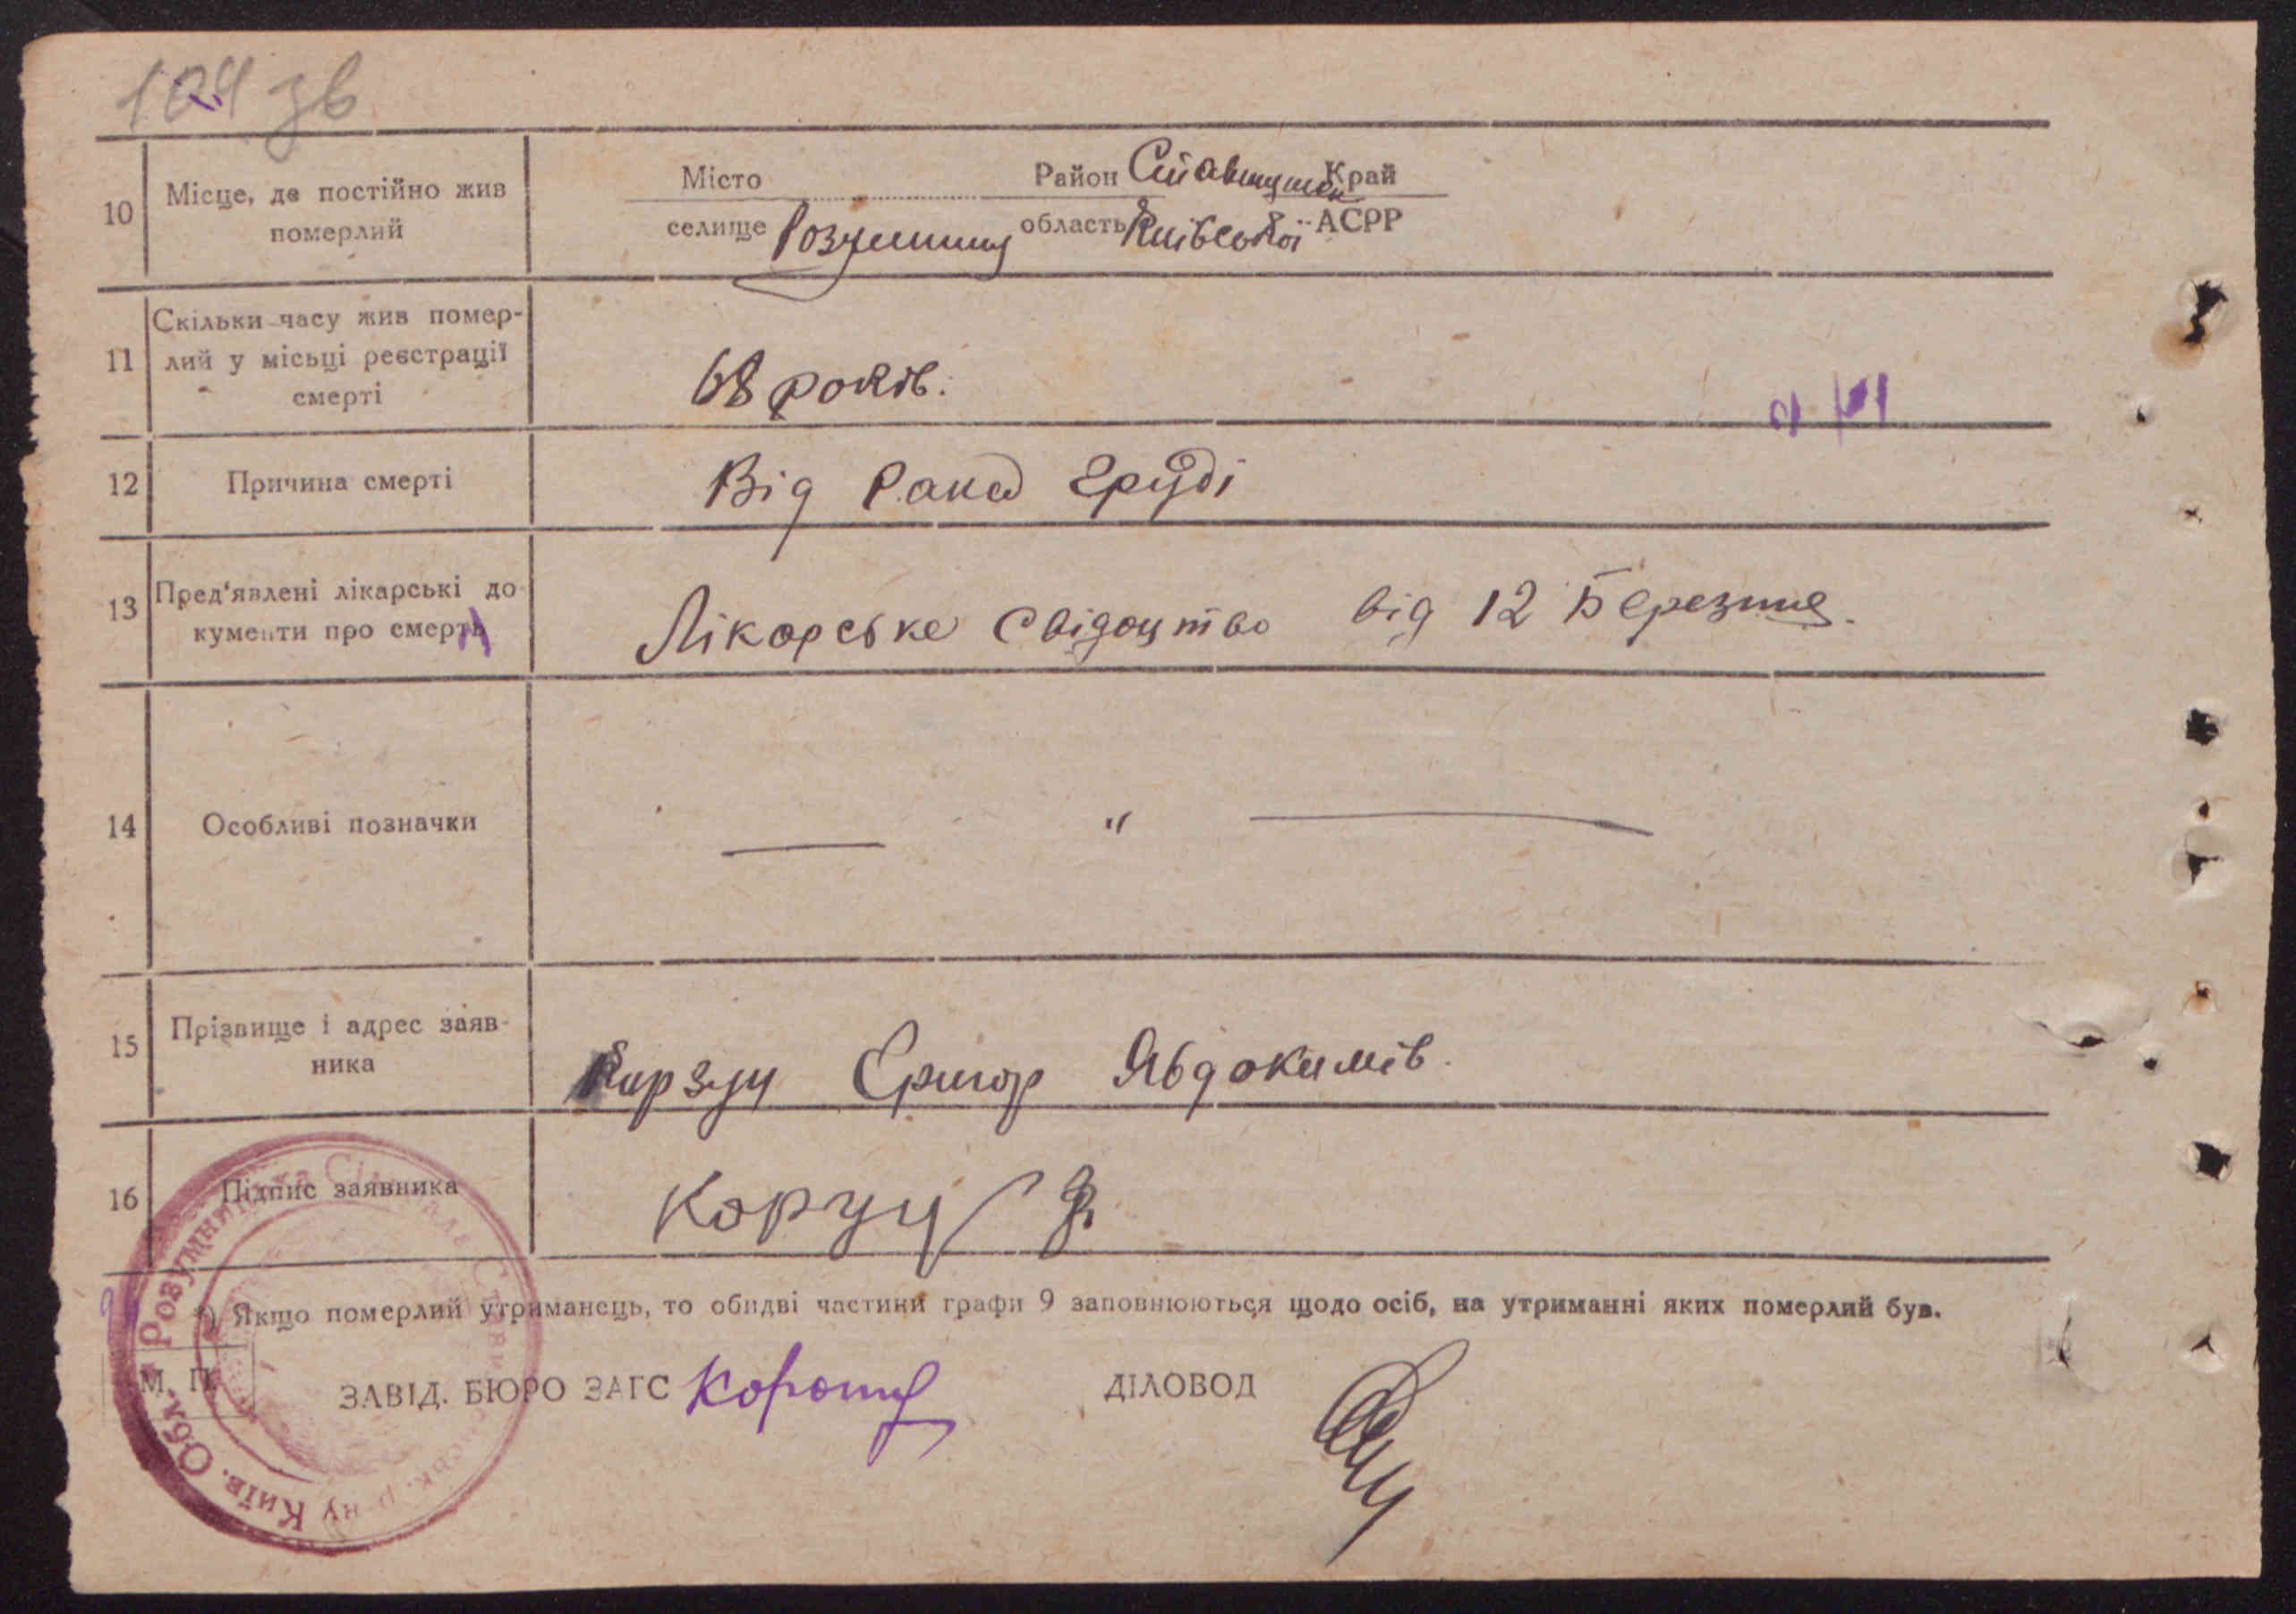 104 зв
10 Місце, де постійно жив померлий
Місто Район Ставищен Край
селище Розумниця область Київської АСРР
11 Скільки часу жив помер-
лий у місьці реєстрації
смерті
68 років.
12 Причина смерті
Від Рака Груді
13 Пред'явлені лікарські до-
кументи про смерть
Лікарське свідоцтво від 12 Березня.
14 Особливі позначки
— " —
15 Прізвище і адрес заяв-
ника
Григор Явдокимів.
16 Підпис заявника
*) Якщо померлий утриманець, то обидві частини графи 9 заповнюються щодо осіб, на утриманні яких померлий був.
М. П.
ЗАВІД. БЮРО ЗАГС ДІЛОВОД
Розумницька Сільрада
р-ну Київ. Обл.